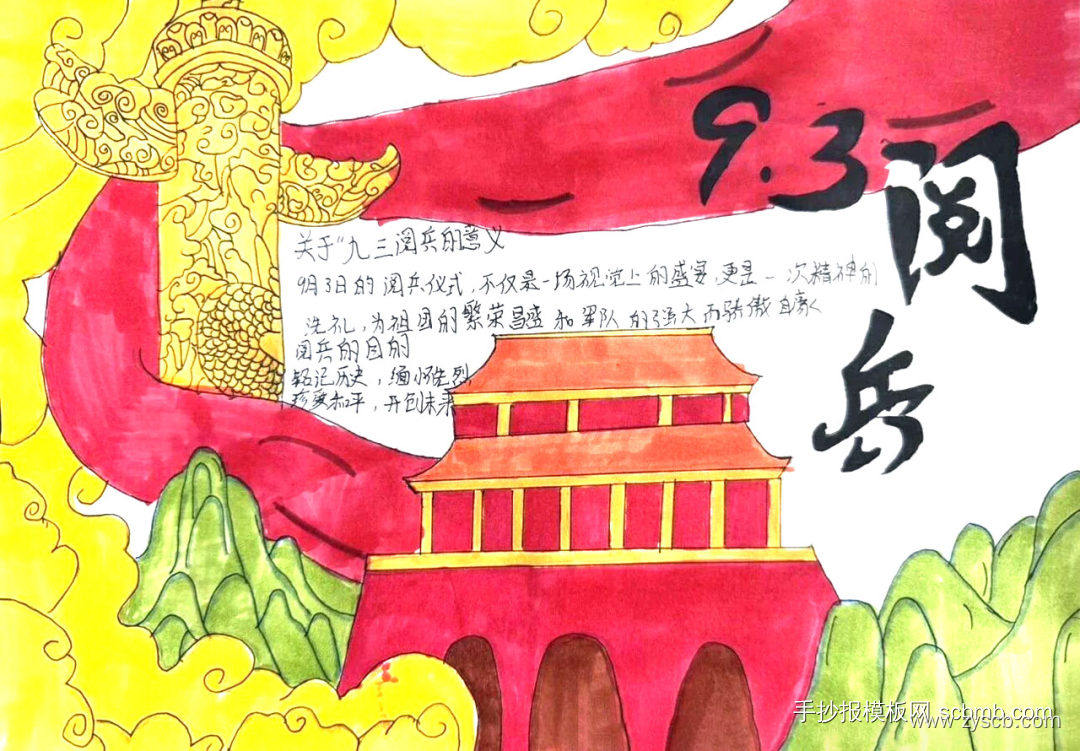 9.3
阅
兵
关于“九三阅兵的意义
9月3日的阅兵仪式，不仅是一场视觉上的盛宴，更是一次精神的
洗礼，为祖国的繁荣昌盛和军队的强大而骄傲自豪
阅兵的目的
铭记历史，缅怀先烈，
珍爱和平，开创未来
手抄报模板网 scbmb.com
www.zyscb.com